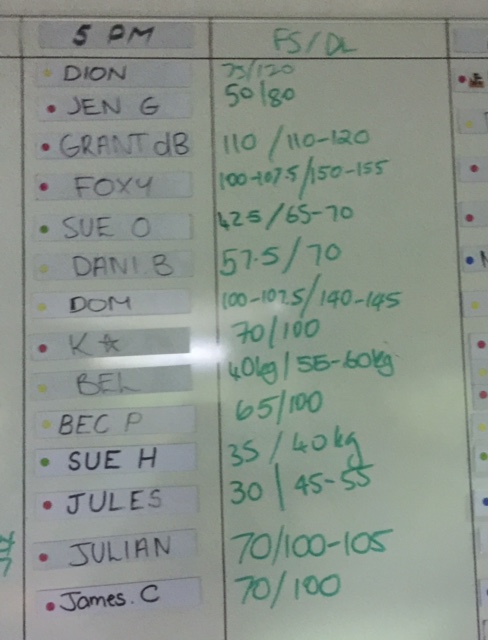 5 AM FS/DL
DION 75/120
JEN G 50/80
GRANT dB 110/110-120
FOXY 100-107.5/150-155
SUE O 42.5/65-70
DANI B 57.5/70
DOM 100-107.5/140-145
K☆ 70/100
BEL 40kg/55-60kg
BEC P 65/100
SUE H 35/40kg
JULES 30/45-55
JULIAN 70/100-105
James.C 70/100